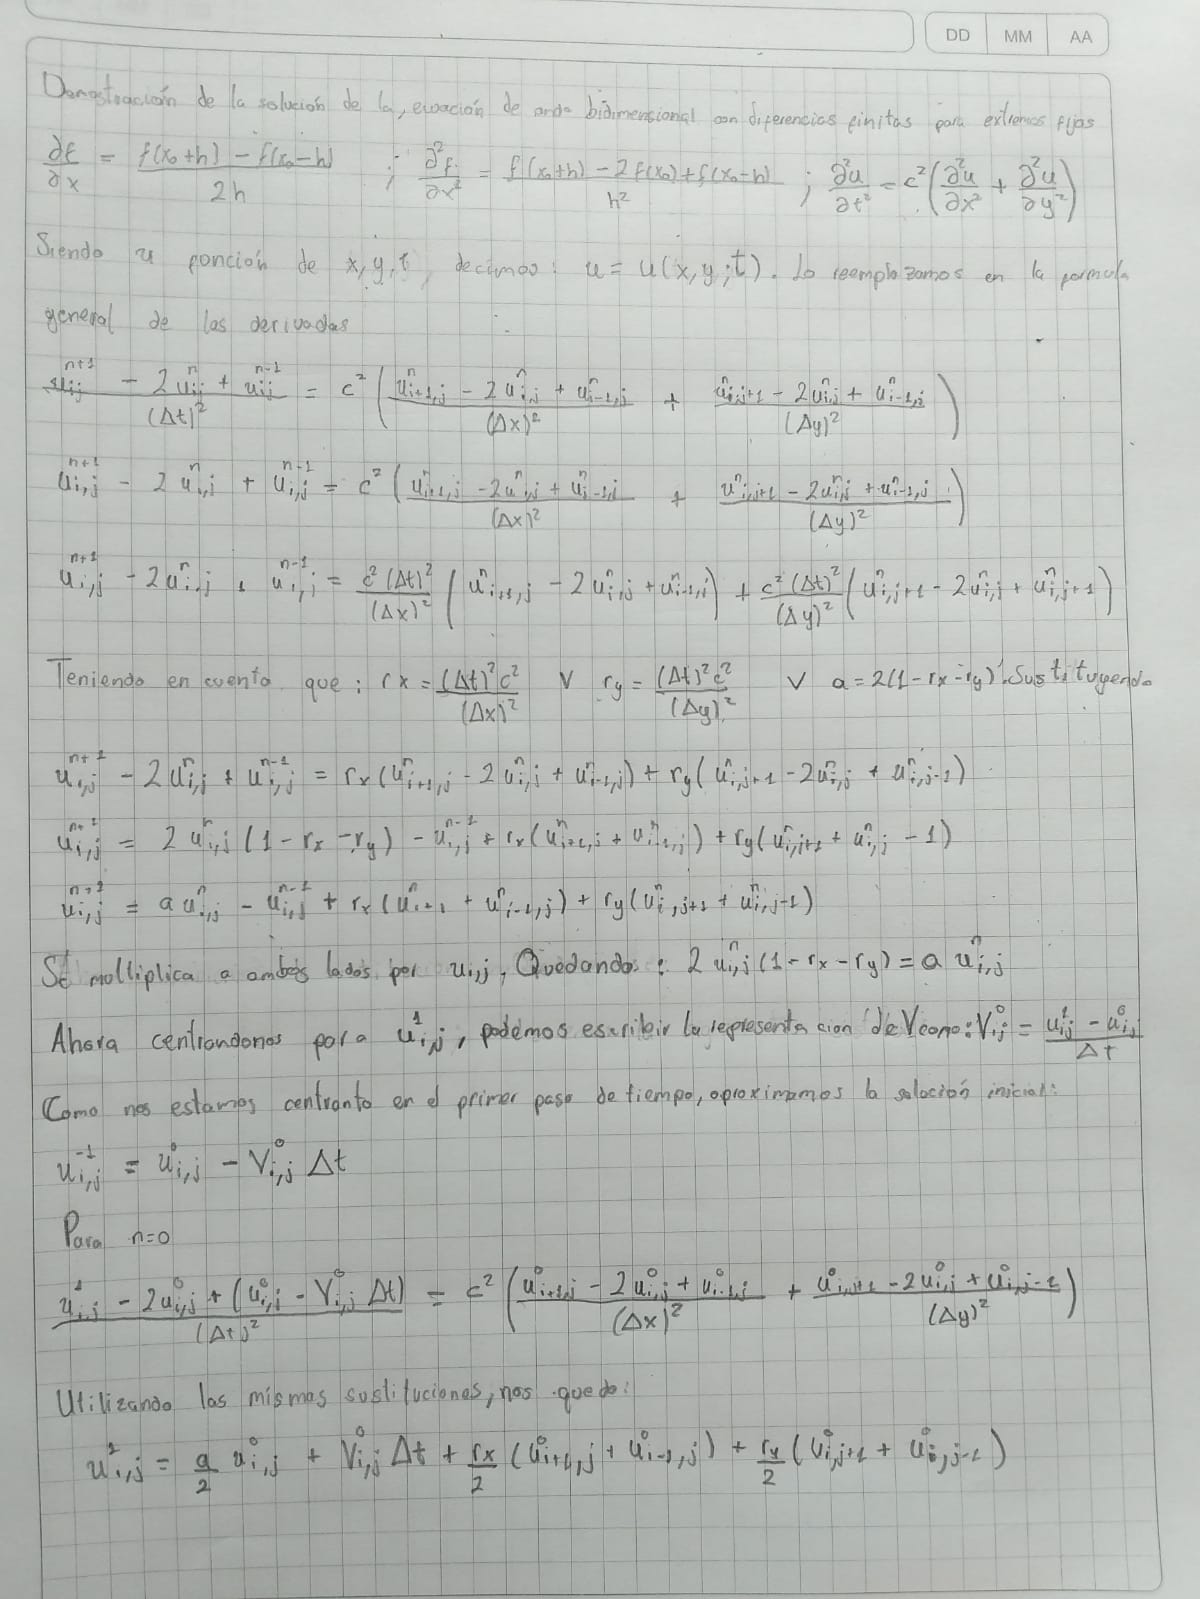 DD MM AA
Demostración de la solución de la, ecuación de onda bidimensional con diferencias finitas para extremos fijos
∂f/∂x = (f(x₀+h) − f(x₀−h))/2h ; ∂²f/∂x² = (f(x₀+h) − 2f(x₀) + f(x₀−h))/h² ; ∂²u/∂t² = c²(∂²u/∂x² + ∂²u/∂y²)
Siendo u función de x, y, t, decimos: u = u(x,y;t). Lo reemplazamos en la formula
general de las derivadas
(uᵢⱼⁿ⁺¹ − 2uᵢⱼⁿ + uᵢⱼⁿ⁻¹)/(Δt)² = c²((uⁿᵢ₊₁,ⱼ − 2uⁿᵢ,ⱼ + uⁿᵢ₋₁,ⱼ)/(Δx)² + (uⁿᵢ,ⱼ₊₁ − 2uⁿᵢ,ⱼ + uⁿᵢ₋₁,ⱼ)/(Δy)²)
uᵢ,ⱼⁿ⁺¹ − 2uⁿᵢ,ⱼ + uᵢ,ⱼⁿ⁻¹ = c²((uⁿᵢ₊₁,ⱼ − 2uⁿᵢ,ⱼ + uⁿᵢ₋₁,ⱼ)/(Δx)² + (uⁿᵢ,ⱼ₊₁ − 2uⁿᵢ,ⱼ + uⁿᵢ₋₁,ⱼ)/(Δy)²)
uᵢ,ⱼⁿ⁺¹ − 2uⁿᵢ,ⱼ + uᵢ,ⱼⁿ⁻¹ = c²(Δt)²/(Δx)² (uⁿᵢ₊₁,ⱼ − 2uⁿᵢ,ⱼ + uⁿᵢ₋₁,ⱼ) + c²(Δt)²/(Δy)² (uⁿᵢ,ⱼ₊₁ − 2uⁿᵢ,ⱼ + uⁿᵢ,ⱼ₊₁)
Teniendo en cuenta que: rx = (Δt)²c²/(Δx)² V ry = (Δt)²c²/(Δy)² V a = 2(1−rx−ry). Sustituyendo
uᵢ,ⱼⁿ⁺¹ − 2uⁿᵢ,ⱼ + uᵢ,ⱼⁿ⁻¹ = rx(uⁿᵢ₊₁,ⱼ − 2uⁿᵢ,ⱼ + uⁿᵢ₋₁,ⱼ) + ry(uⁿᵢ,ⱼ₊₁ − 2uⁿᵢ,ⱼ + uⁿᵢ,ⱼ₋₁)
uᵢ,ⱼⁿ⁺¹ = 2uⁿᵢ,ⱼ(1 − rx − ry) − uᵢ,ⱼⁿ⁻¹ + rx(uⁿᵢ₊₁,ⱼ + uⁿᵢ₋₁,ⱼ) + ry(uⁿᵢ,ⱼ₊₁ + uⁿᵢ,ⱼ − 1)
uᵢ,ⱼⁿ⁺¹ = a uⁿᵢ,ⱼ − uᵢ,ⱼⁿ⁻¹ + rx(uⁿᵢ₊₁ + uⁿᵢ₋₁,ⱼ) + ry(uⁿᵢ,ⱼ₊₁ + uⁿᵢ,ⱼ₋₁)
Se molliplica a ambos lados por uᵢ,ⱼ, Quedando: 2uⁿᵢ,ⱼ(1 − rx − ry) = a uⁿᵢ,ⱼ
Ahora centrandonos para u¹ᵢ,ⱼ, podemos escribir la representacion de V como: V⁰ᵢⱼ = (u¹ᵢⱼ − u⁰ᵢⱼ)/Δt
Como nos estamos centranto en el primer paso de tiempo, aproximamos la solución inicial:
uᵢ,ⱼ⁻¹ = u⁰ᵢ,ⱼ − V⁰ᵢ,ⱼ Δt
Para n=0
(u¹ᵢ,ⱼ − 2u⁰ᵢ,ⱼ + (u⁰ᵢ,ⱼ − V⁰ᵢ,ⱼ Δt))/(Δt)² = c²((u⁰ᵢ₊₁,ⱼ − 2u⁰ᵢ,ⱼ + u⁰ᵢ₋₁,ⱼ)/(Δx)² + (u⁰ᵢ,ⱼ₊₁ − 2u⁰ᵢ,ⱼ + u⁰ᵢ,ⱼ₋₁)/(Δy)²)
Utilizando las mismas sustituciones, nos queda:
u¹ᵢ,ⱼ = a/2 u⁰ᵢ,ⱼ + V⁰ᵢ,ⱼ Δt + rx/2 (u⁰ᵢ₊₁,ⱼ + u⁰ᵢ₋₁,ⱼ) + ry/2 (u⁰ᵢ,ⱼ₊₁ + u⁰ᵢ,ⱼ₋₁)